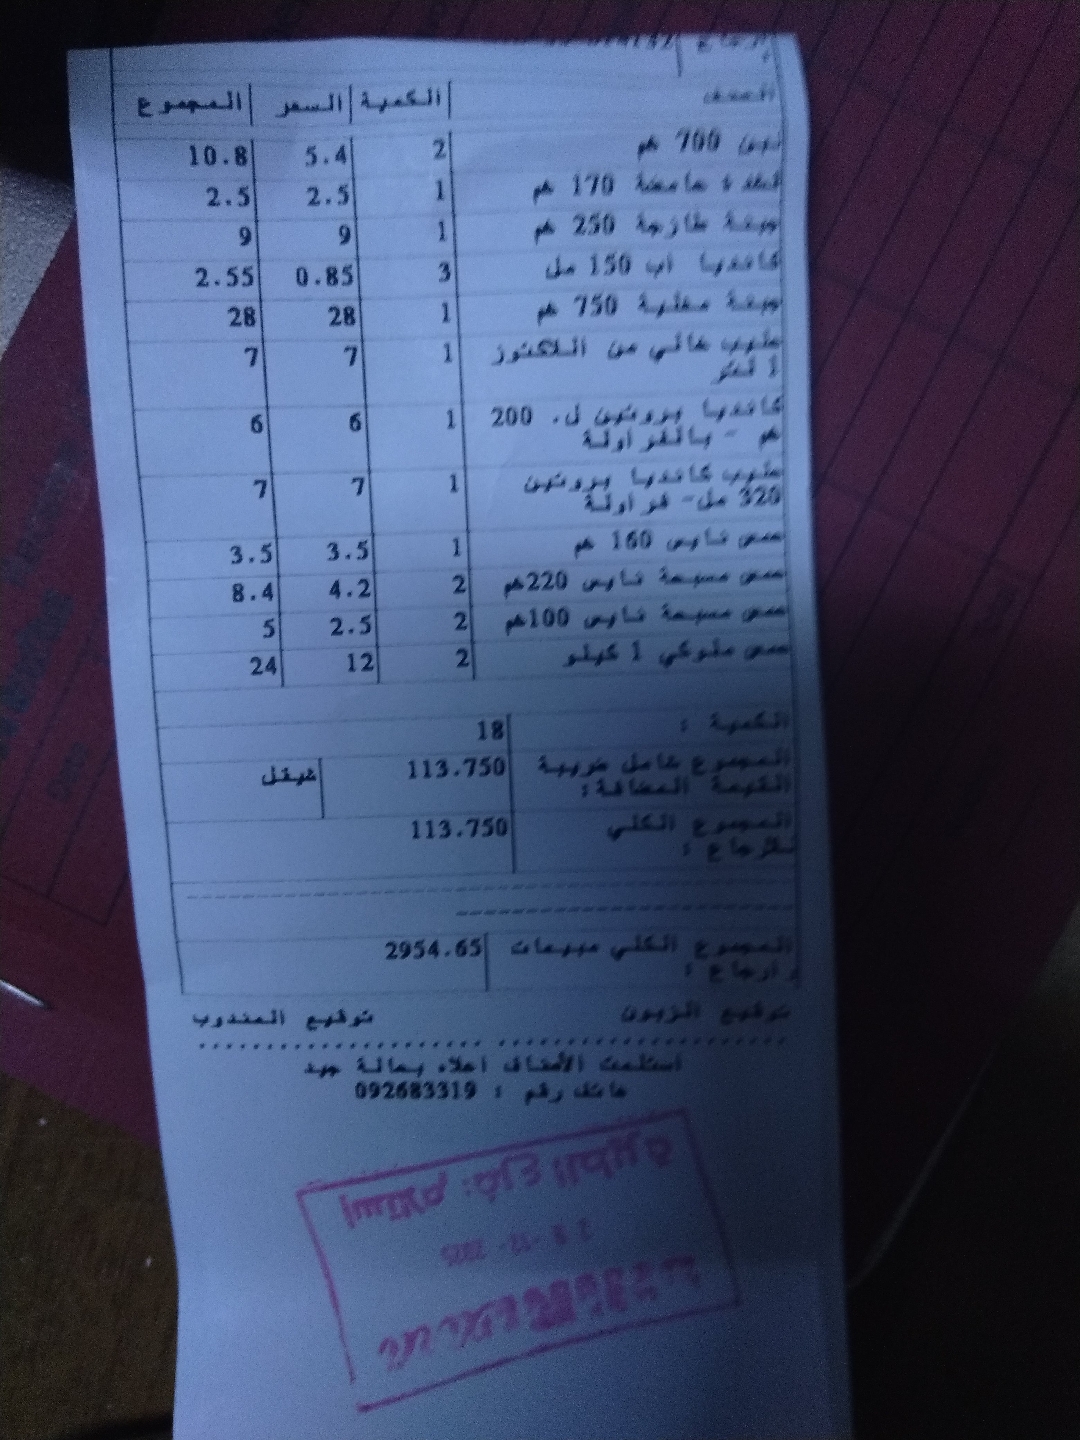 الصنف الكمية السعر المجموع
لبن 700 غم 2 5.4 10.8
قشدة حامضة 170 غم 1 2.5 2.5
جبنة طازجة 250 غم 1 9 9
كانديا اب 150 مل 3 0.85 2.55
جبنة مغلية 750 غم 1 28 28
حليب خالي من اللاكتوز 1 7 7
1 لتر
كانديا بروتين ل. 200 1 6 6
غم - بالفراولة
حليب كانديا بروتين 1 7 7
320 مل- فراولة
حمص نابس 160 غم 1 3.5 3.5
حمص مسبحة نابس 220غم 2 4.2 8.4
حمص مسبحة نابس 100غم 2 2.5 5
حمص ملوكي 1 كيلو 2 12 24
الكمية : 18
المجموع شامل ضريبة 113.750 شيقل
القيمة المضافة:
المجموع الكلي 113.750
للارجاع :
المجموع الكلي مبيعات 2954.65
وارجاع :
توقيع الزبون توقيع المندوب
استلمت الأصناف اعلاه بحالة جيد
هاتف رقم : 092683319
استلام: فرع الطيرة